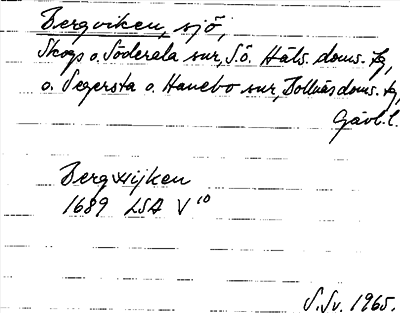 Bergviken, sjö,
Skogs o. Söderala snr, S.ö. Häls. doms. fg,
o. Segersta o. Hanebo snr, Bollnäs doms. fg,
Gävl. l.
Bergwijken
1689 LSA V¹⁰
S. Sv. 1965.